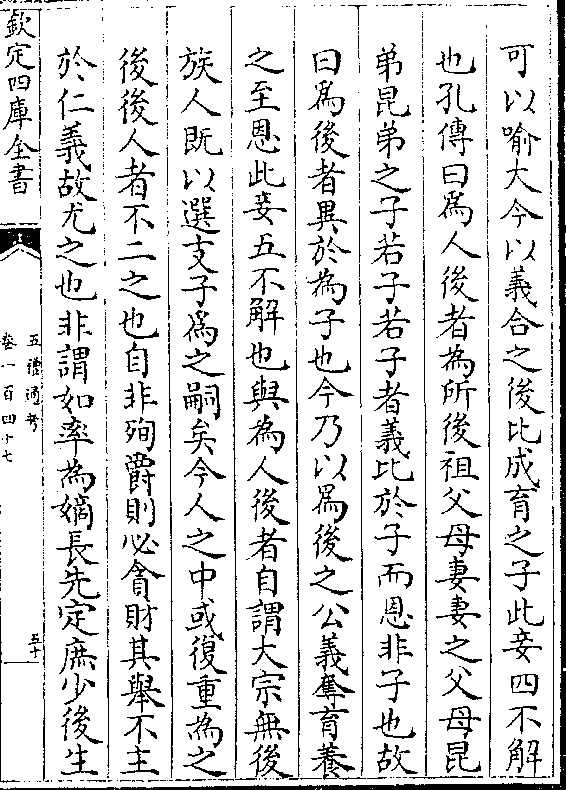 可以喻大今以義合之後比成育之子此妾四不解
也孔傳曰爲人後者為所後祖父母妻妻之父母昆
弟昆弟之子若子若子者義比於子而恩非子也故
曰爲後者異於為子也今乃以爲後之公義奪育養
之至恩此妾五不解也與為人後者自謂大宗無後
族人既以選支子爲之嗣矣今人之中或復重為之
後後人者不二之也自非殉爵則必貪財其舉不主
於仁義故尤之也非謂如率為嫡長先定庶少後生
欽定四庫全書
五禮通考
卷一百四十七
五十